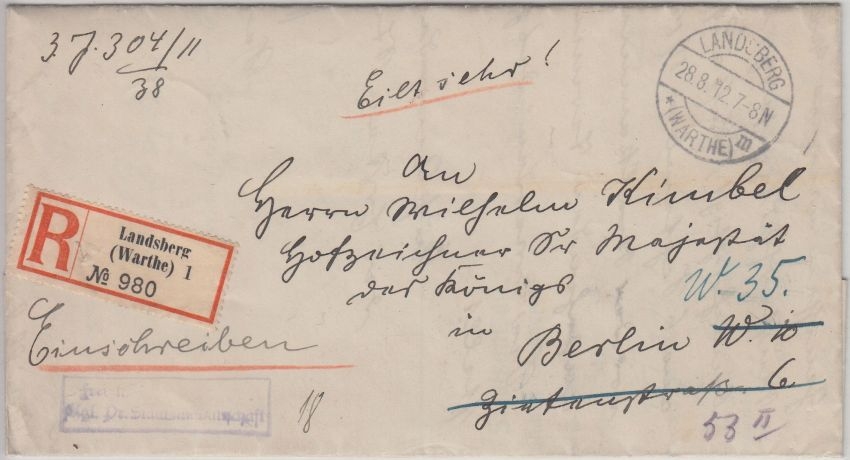 3. J. 304/11
38
Eilt sehr!
LANDSBERG
28.8.12.7-8N
*(WARTHE) m
An
Herrn Wilhelm Kimbel
Hofzeichner Sr Majestät
des Königs
W. 35.
in Berlin W. 10
Zietenstraße 6
53 II
R
Landsberg
(Warthe) 1
№ 980
Einschreiben
Kgl. Pr. Staatsanwaltschaft
18